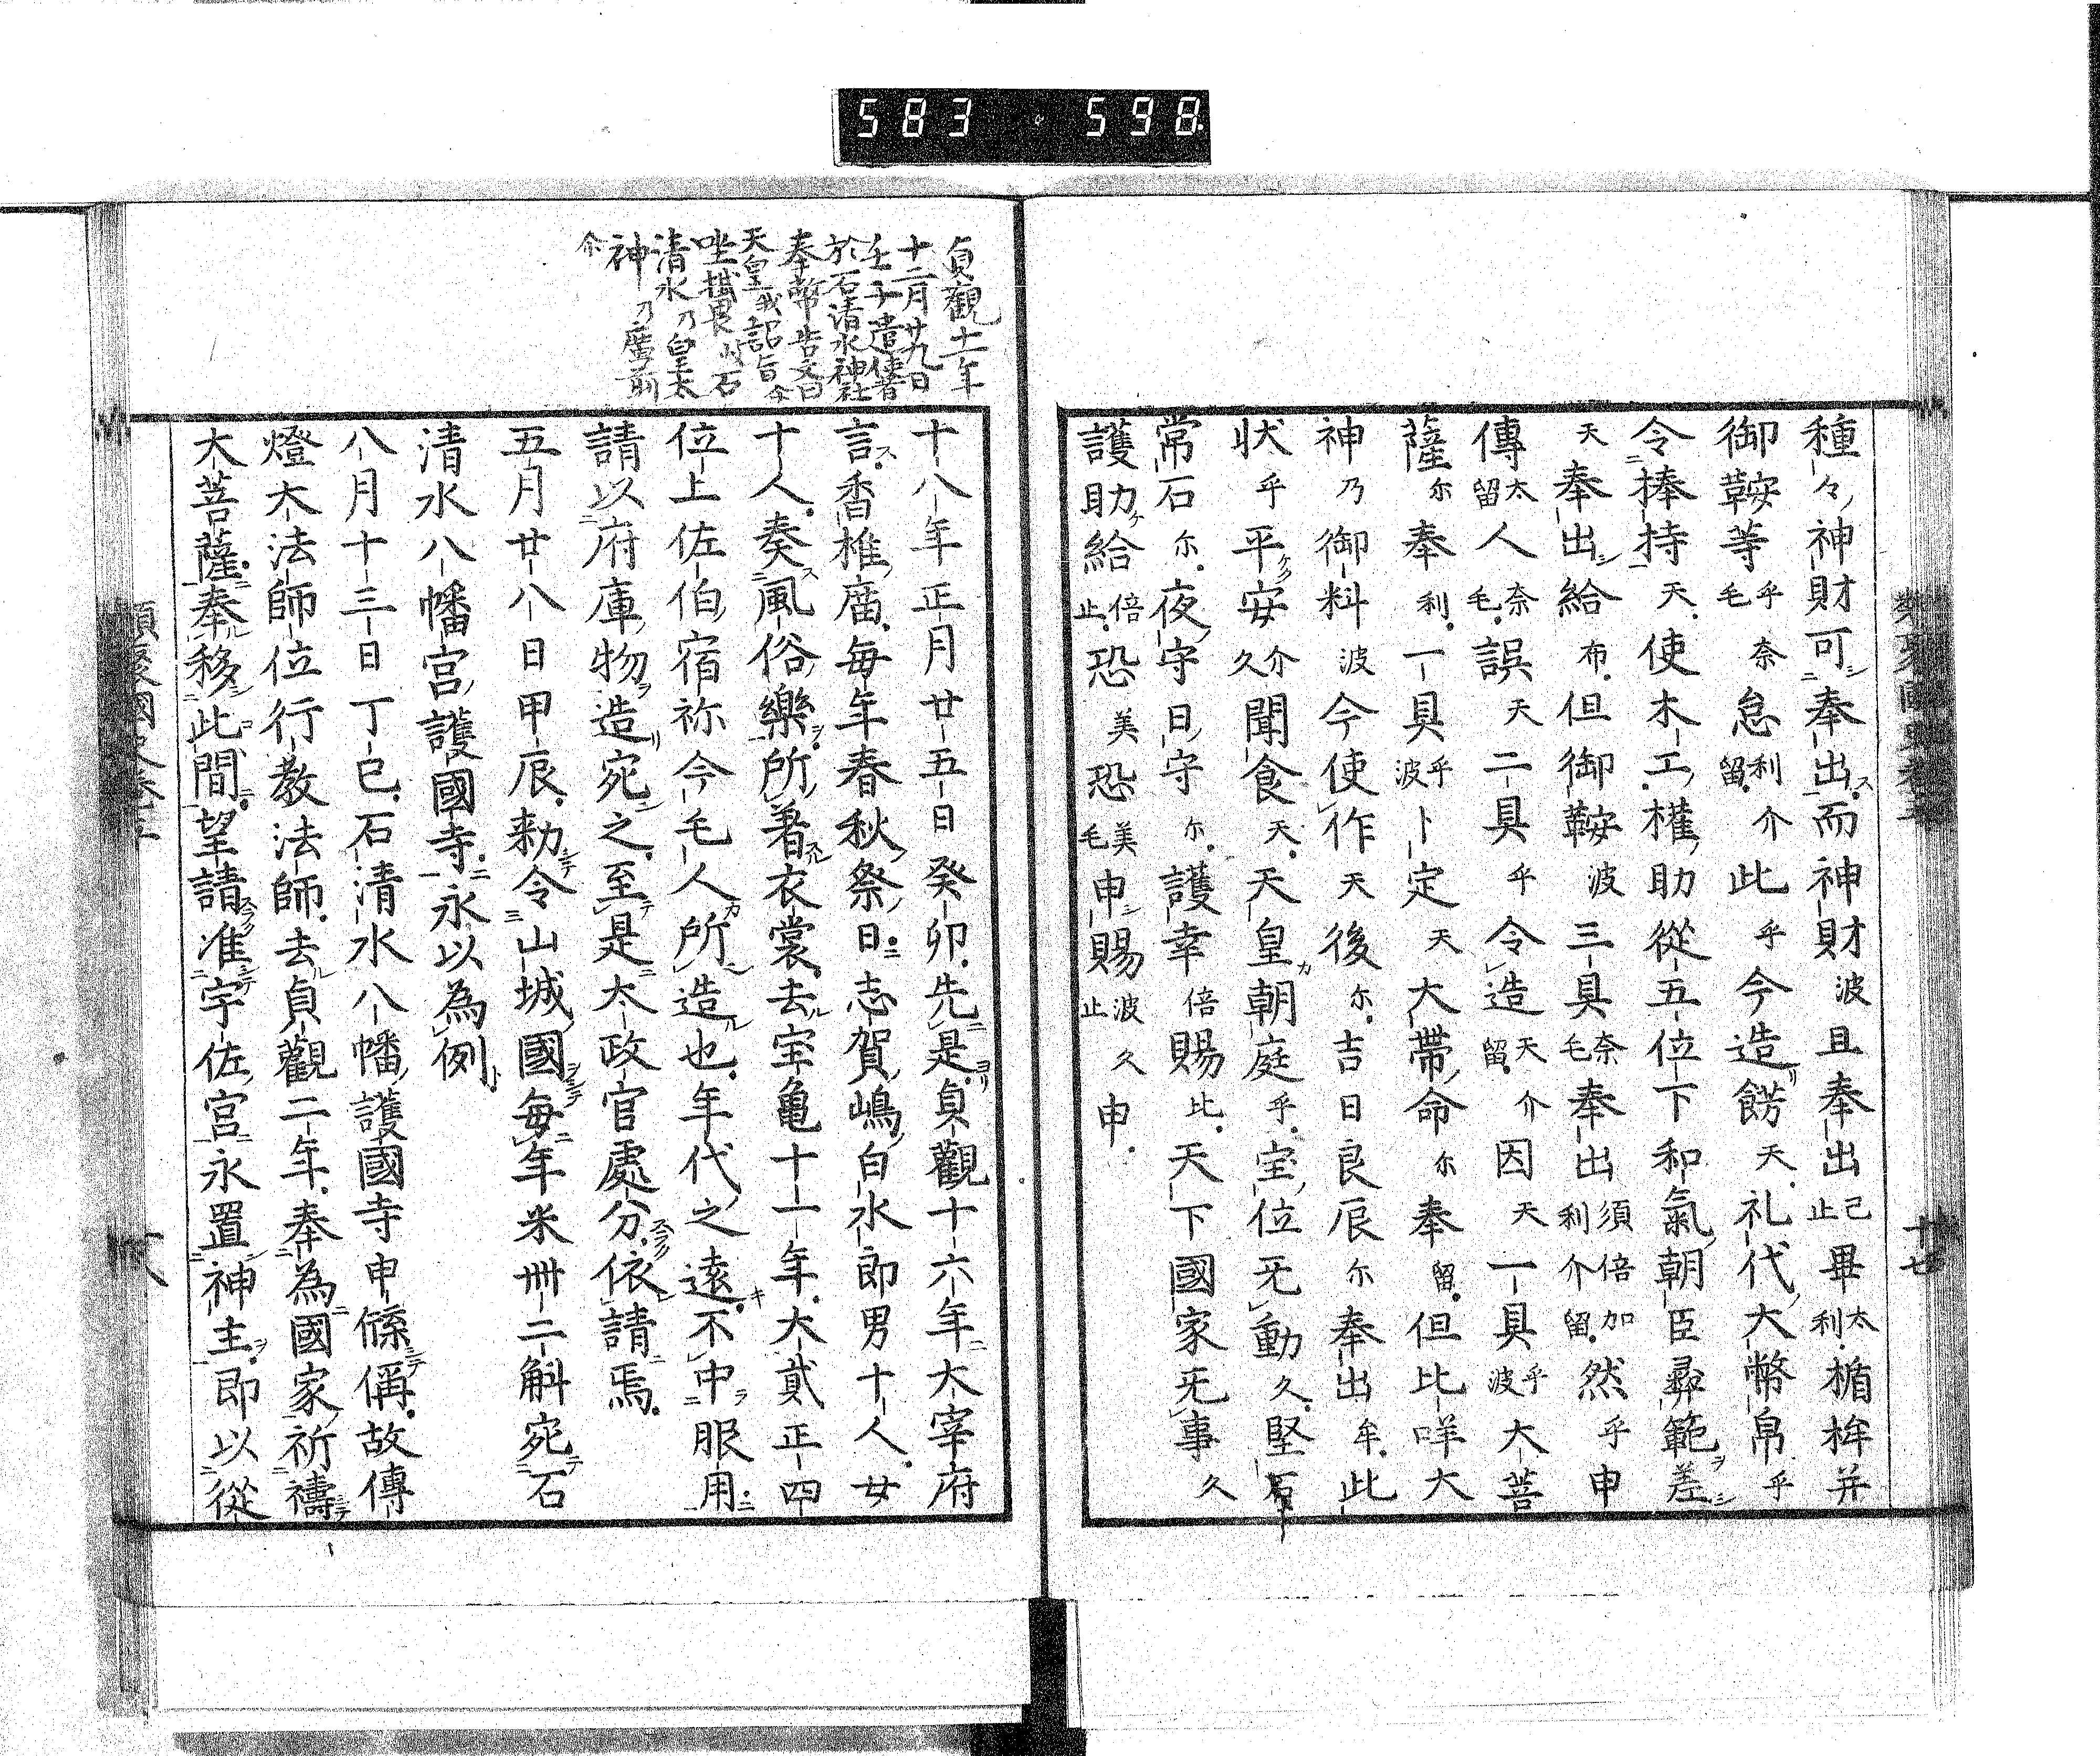 583 598
種々神財可奉出而神財波且奉出止己畢太利楯桙并
御鞍等乎毛奈怠利留介此乎今造餝天礼代大幣帛乎
令捧持天使木工權助從五位下和氣朝臣彛範差
天奉出給布但御鞍波三具奈毛奉出須倍加利介留然乎申
傳太留人奈毛誤天二具乎令造天留介因天一具乎波大菩
薩尔奉利一具乎波卜定天大帶命尔奉留但比咩大
神乃御料波今使作天後尓吉日良辰尓奉出牟此
狀乎平安介久聞食天天皇朝庭乎宝位无動久堅石
常石尓夜守日守尓護幸倍賜比天下國家无事久
護助給倍止恐美恐美毛申賜波止久申
貞觀十二年
十二月廿九日
壬子遣使者
於石清水神社
奉幣告文曰
天皇我詔旨今
坐掛畏岐石
清水乃皇太
神乃廣前
尒
十八年正月廿五日癸卯先是貞觀十六年大宰府
言香椎廟每年春秋祭日志賀嶋白水郎男十人女
十人奏風俗樂所著衣裳去宝亀十一年大貳正四
位上佐伯宿祢今毛人所造也年代之遠不中服用
請以府庫物造宛之至是太政官處分依請焉
五月廿八日甲辰勑令山城國每年米卌二斛宛石
清水八幡宮護國寺永以為例
八月十三日丁巳石清水八幡護國寺申牒偁故傳
燈大法師位行教法師去貞觀二年奉為國家祈禱
大菩薩奉移此間望請准宇佐宮永置神主即以從